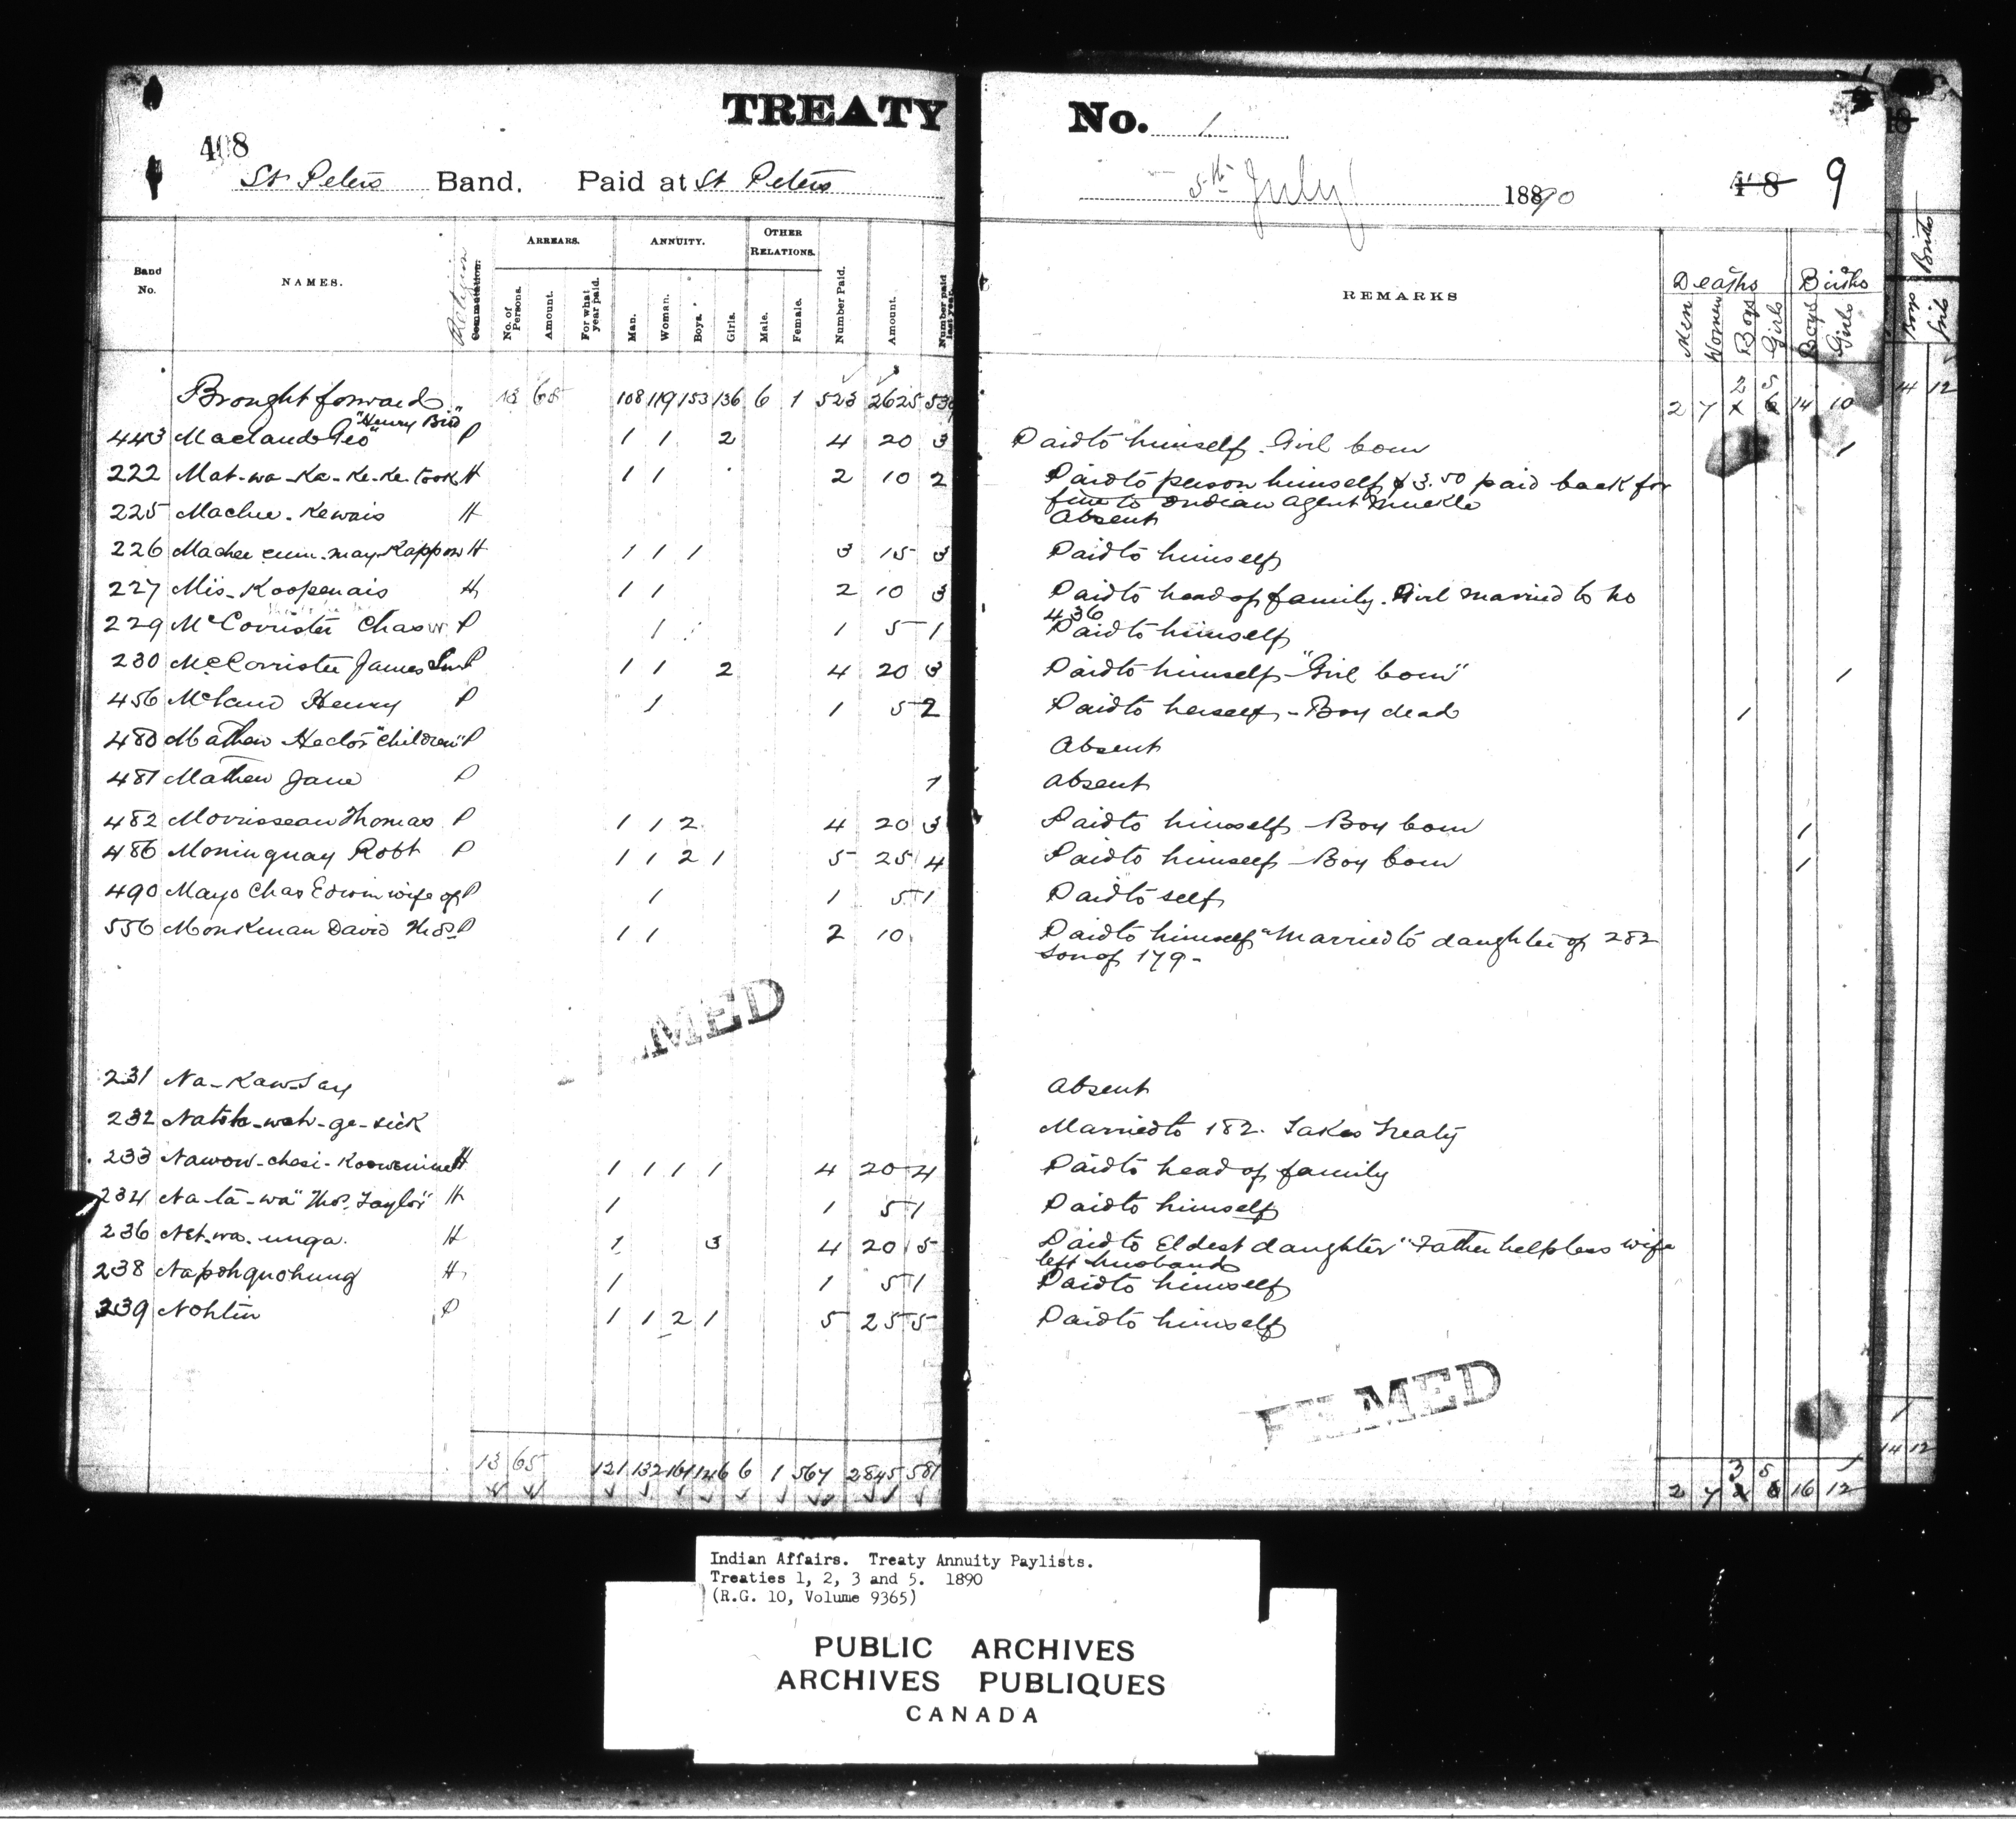 TREATY No. 1
408
St Peters Band. Paid at St Peters
5th July 1890
418 9
Band No. NAMES. Religion Commutation. ARREARS. No. of Persons. Amount. For what year paid. ANNUITY. Man. Woman. Boys. Girls. OTHER RELATIONS. Male. Female. Number Paid. Amount. Number paid last year.
REMARKS Deaths Men Women Boys Girls Births Boys Girls
Births Boys Girls
Brought forward 13 65 108 119 153 136 6 1 523 2625 539
2 5
2 7 14 10
14 12
"Henry Bird"
443 Maclaud Geo P 1 1 2 4 20 3 Paid to himself. Girl born 1
222 Mat-wa-Ka-Ke-Ke-took H 1 1 2 10 2 Paid to person himself $3.50 paid back for
fine to Indian agent Muckle
225 Machee-Kewais H Absent
226 Machee cum-may-Kappow H 1 1 1 3 15 3 Paid to himself
227 Mis-Koopenais H 1 1 2 10 3 Paid to head of family. Girl married to no
436
229 McCorrister Chas W. P 1 1 5 1 Paid to himself
230 McCorrister James Senr P 1 1 2 4 20 3 Paid to himself "Girl born" 1
456 Henry P 1 1 5 2 Paid to herself - Boy dead 1
480 Mathew Hector "Children" P Absent
481 Mathew Jane P 1 absent
482 Morrisseau Thomas P 1 1 2 4 20 3 Paid to himself - Boy born 1
486 Moninguay Robt P 1 1 2 1 5 25 4 Paid to himself - Boy born 1
490 Mayo Chas Edwin wife of P 1 1 5 1 Paid to self
556 Monkman David Thos P 1 1 2 10 Paid to himself "Married to daughter of 282
son of 179-
231 Na-Kaw-Say Absent
232 Natota-wah-ge-sick Married to 182. Takes Treaty
233 Nawow-chasi-Kooweninee H 1 1 1 1 4 20 4 Paid to head of family
234 Na-ta-wa "Thos. Taylor" H 1 1 5 1 Paid to himself
236 Net-wa-unga. H 1 3 4 20 5 Paid to Eldest daughter "Father helpless wife
left husband
238 Napohquohung H 1 1 5 1 Paid to himself
239 Nohtin P 1 1 2 1 5 25 5 Paid to himself
FILMED
13 65 121 132 161 146 6 1 567 2845 581
3 5 1
2 7 16 12
1
14 12
Indian Affairs. Treaty Annuity Paylists.
Treaties 1, 2, 3 and 5. 1890
(R.G. 10, Volume 9365)
PUBLIC ARCHIVES
ARCHIVES PUBLIQUES
CANADA